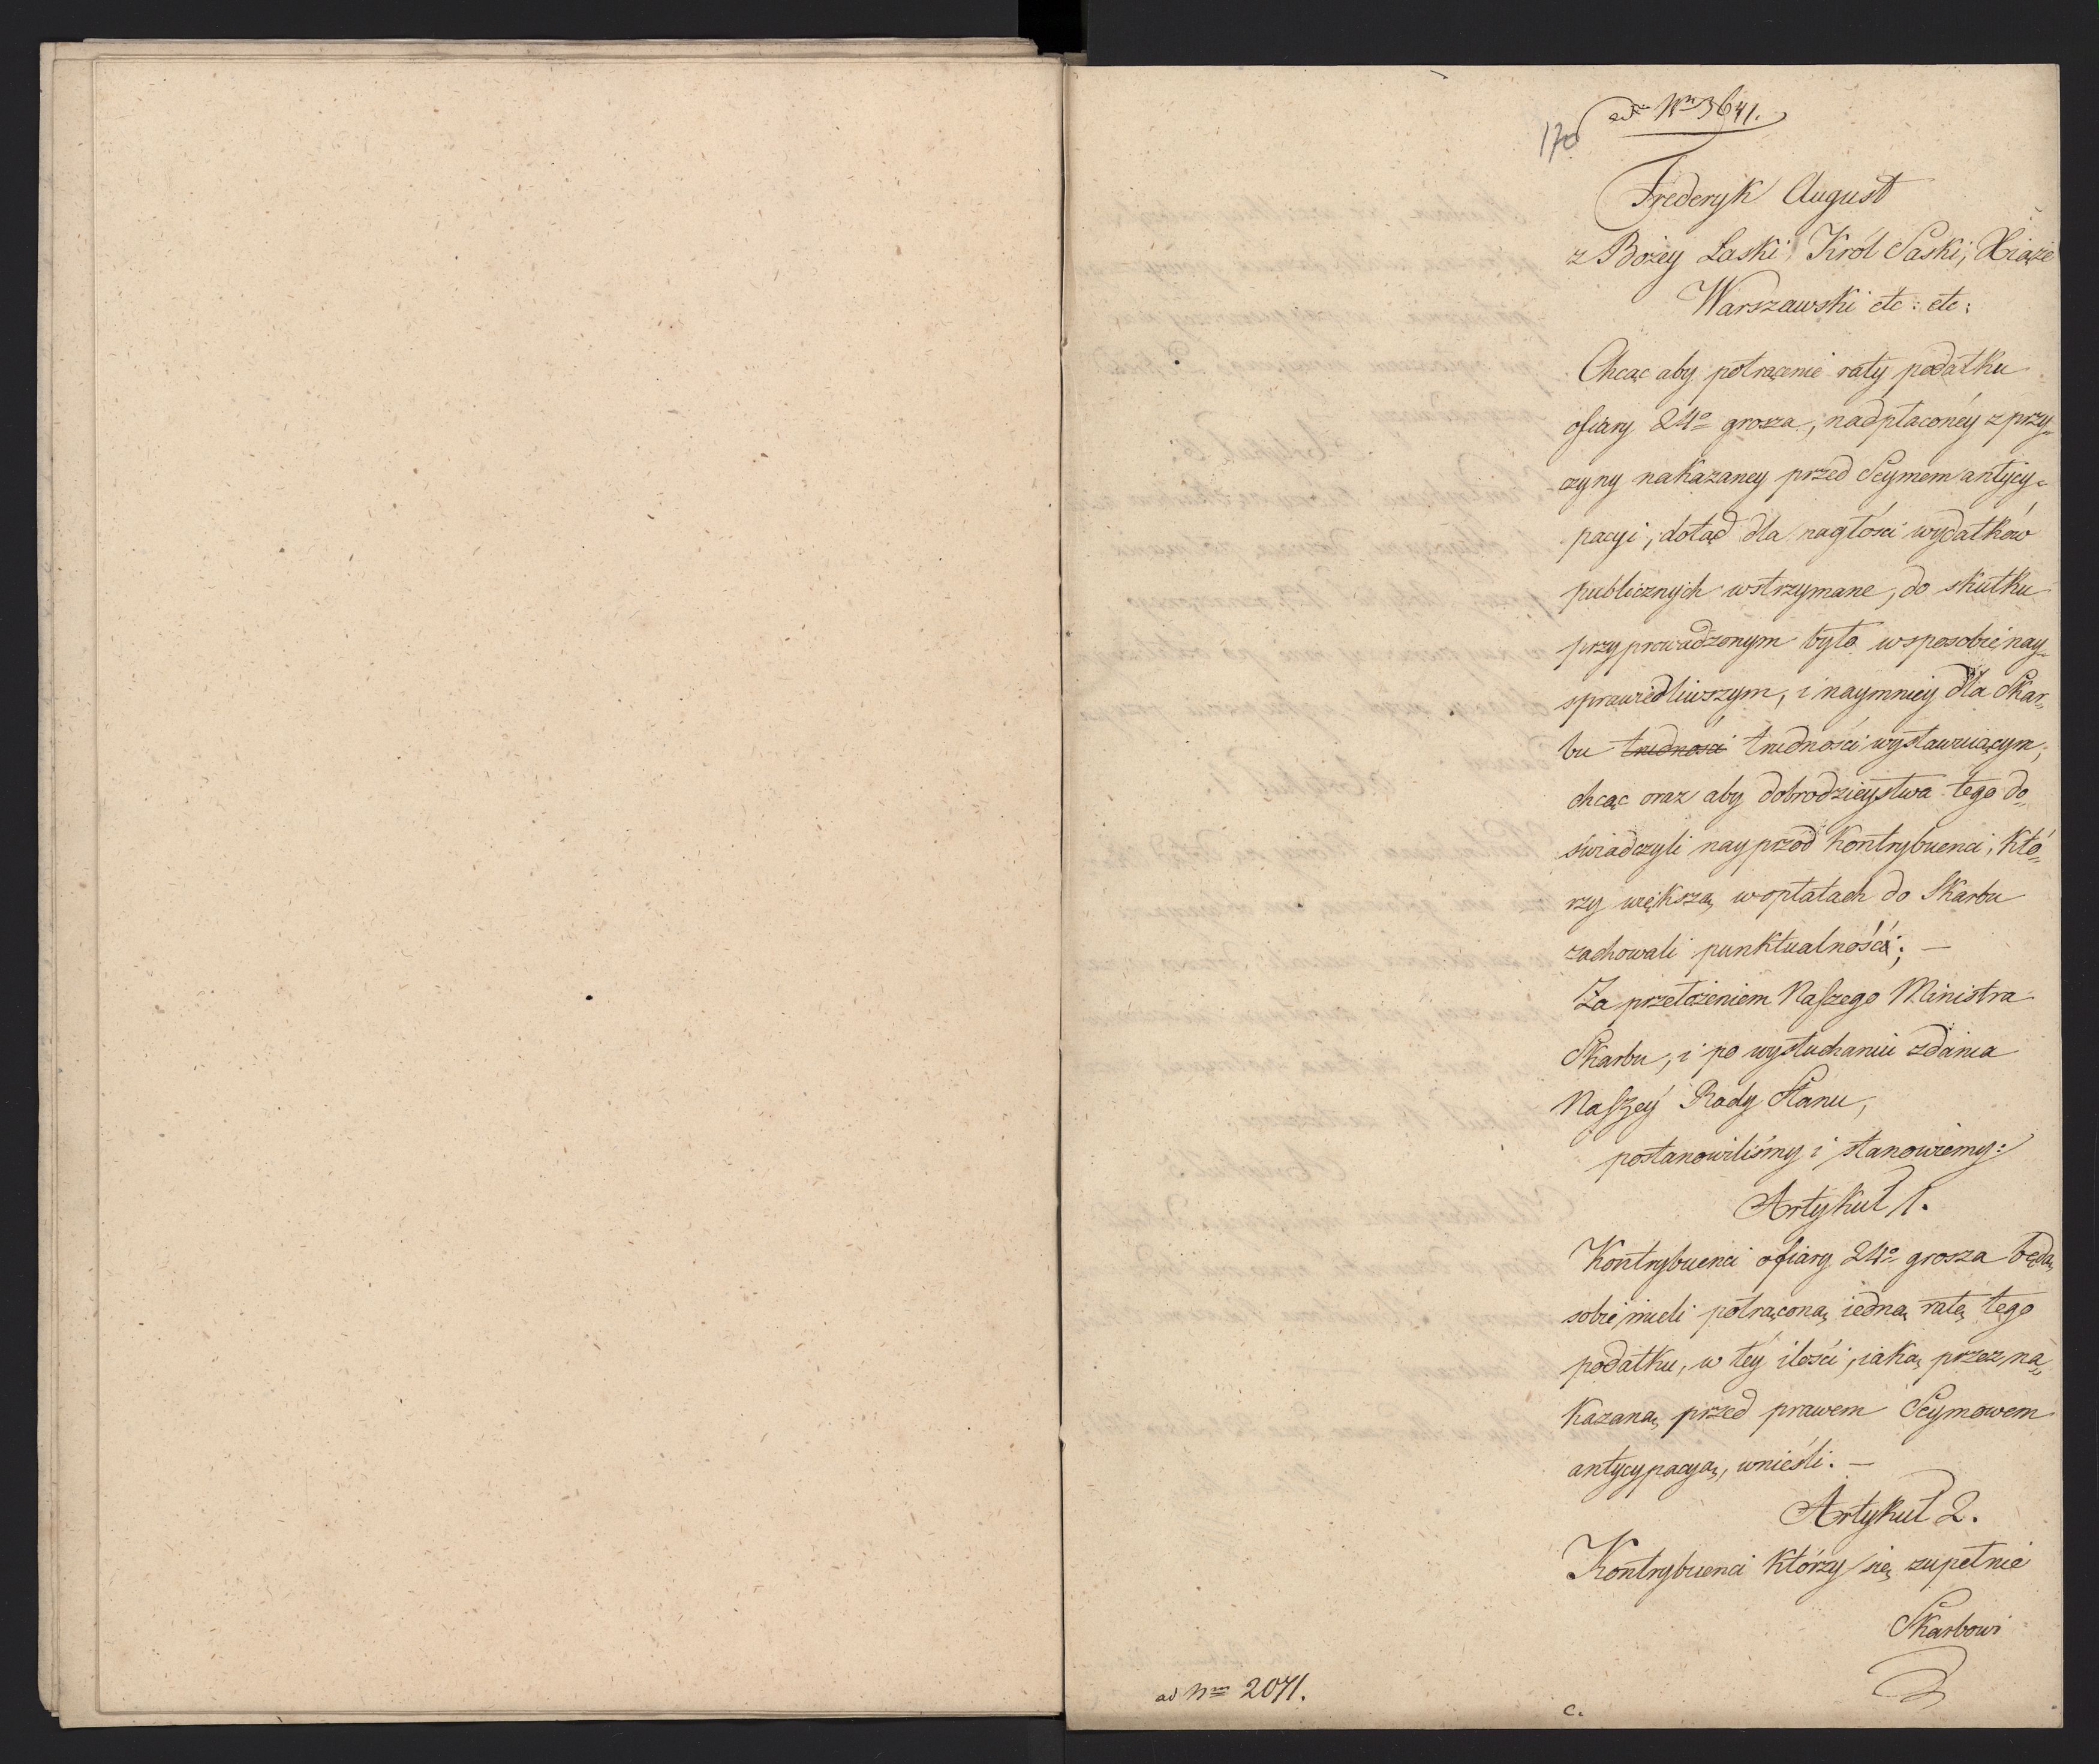 ad Nrm 3641.
170
Frederyk August
z Bożey Łaski Król Saski, Xiąże
Warszawski etc: etc:
Chcąc aby potrącenie raty podatku
ofiary 24o grosza, nadpłaconéy z przy=
czyny nakazaney przed Seymem antycy=
pacyi, dotąd dla nagłości wydatków
publicznych wstrzymane, do skutku
przyprowadzonym było w sposobie nay=
sprawiedliwszym, i naymniey dla Skar=
bu trudności trudności wystawuiącym,
chcąc oraz aby dobrodzieystwa tego do=
świadczyli nayprzód Kontrybuenci, któ=
rzy większą w opłatach do Skarbu
zachowali punktualność; —
Za przełożeniem Naszego Ministra
Skarbu, i po wysłuchaniu zdania
Naszey Rady Stanu,
postanowiliśmy i stanowiemy:
Artykuł 1.
Kontrybuenci ofiary 24o grosza będą
sobie mieli potrąconą iedną ratę tego
podatku, w tey ilości, iaką przez na=
kazaną przed prawem Seymowem
antycypacyą, wnieśli. —
Artykuł 2.
Kontrybuenci którzy się zupełnie
Skarbowi
ad Nrm 2071.
c.